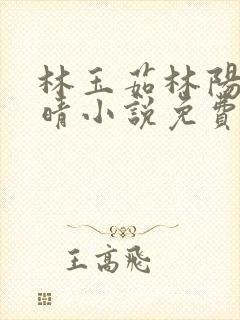 林玉茹林陽
晴小說免費
王高飛